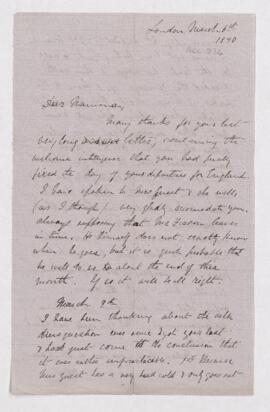 London March 6th
1890
Dear Mamma,
Many thanks for your last
very long letter, containing the
welcome intelligence that you had finally
fixed the day of your departure for England.
I have spoken to Mrs Guest & she will,
(as I thought) very gladly accommodate you,
always supposing that Mr leaves
in time. He himself does not exactly know
when he goes, but it is quite probable that
he will do so about the end of this
month. If so it will be all right.
March 9th
I have been thinking about the
question ever since I got your last
& have just come to the conclusion that
it was rather impracticable. 1st Because
Mrs Guest has a very bad cold & only goes out